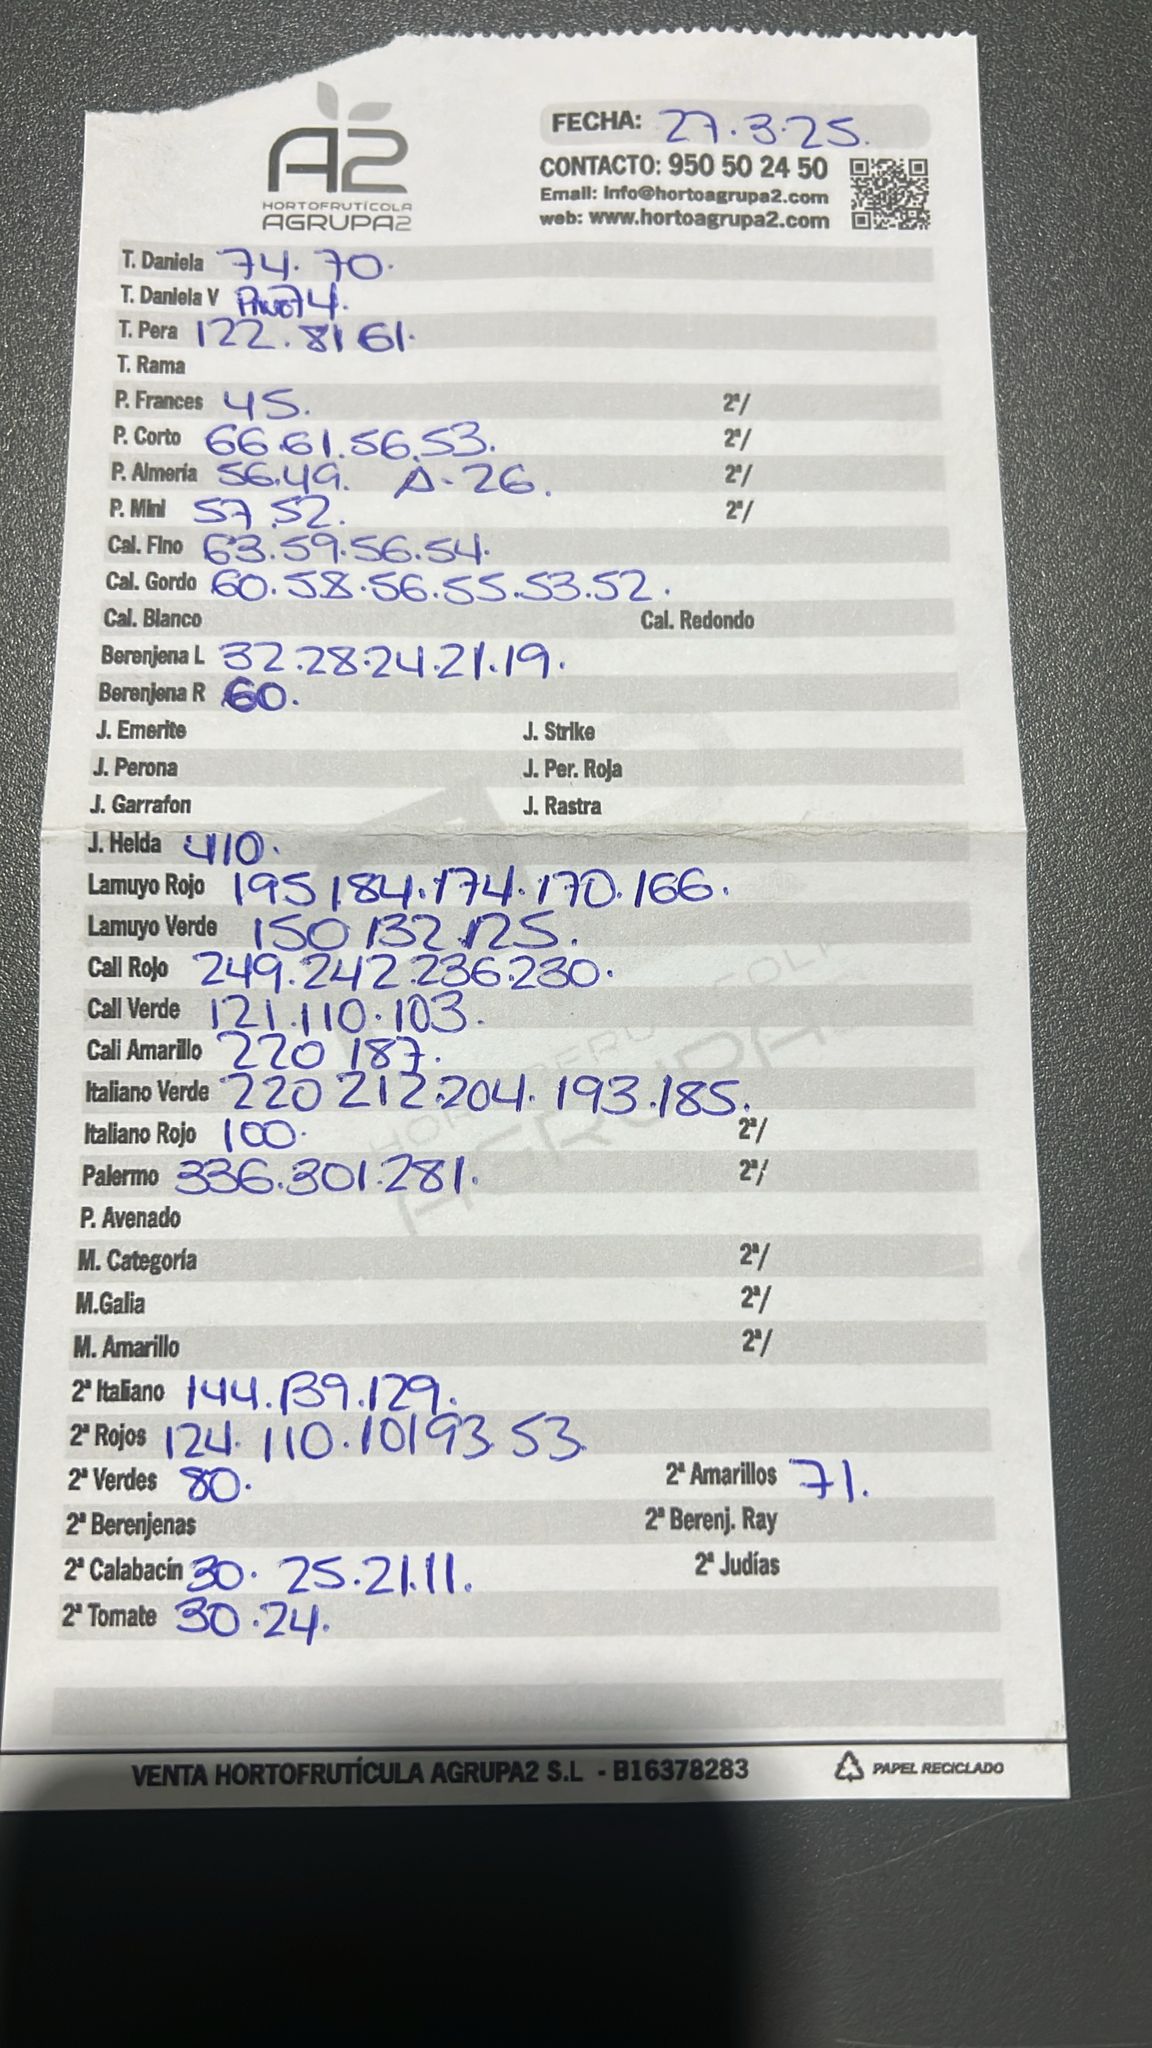 A2
HORTOFRUTÍCOLA
AGRUPA2
FECHA: 27.3.25.
CONTACTO: 950 50 24 50
Email: info@hortoagrupa2.com
web: www.hortoagrupa2.com
T. Daniela 74. 70.
T. Daniela V 74.
T. Pera 122. 81 61.
T. Rama
P. Frances 45. 2ª/
P. Corto 66.61.56.53. 2ª/
P. Almería 56.49. A-26. 2ª/
P. Mini 57.52. 2ª/
Cal. Fino 63.59.56.54.
Cal. Gordo 60.58.56.55.53.52.
Cal. Blanco Cal. Redondo
Berenjena L 32.28.24.21.19.
Berenjena R 60.
J. Emerite J. Strike
J. Perona J. Per. Roja
J. Garrafon J. Rastra
J. Helda 410.
Lamuyo Rojo 195 184.174.170.166.
Lamuyo Verde 150 132.125.
Cali Rojo 249.242.236.230.
Cali Verde 121.110.103.
Cali Amarillo 220 187.
Italiano Verde 220 212.204.193.185.
Italiano Rojo 100. 2ª/
Palermo 336.301.281. 2ª/
P. Avenado
M. Categoría 2ª/
M.Galia 2ª/
M. Amarillo 2ª/
2ª Italiano 144.139.129.
2ª Rojos 124.110.101 93.53.
2ª Verdes 80. 2ª Amarillos 71.
2ª Berenjenas 2ª Berenj. Ray
2ª Calabacín 30. 25.21.11. 2ª Judías
2ª Tomate 30.24.
VENTA HORTOFRUTÍCULA AGRUPA2 S.L - B16378283 PAPEL RECICLADO